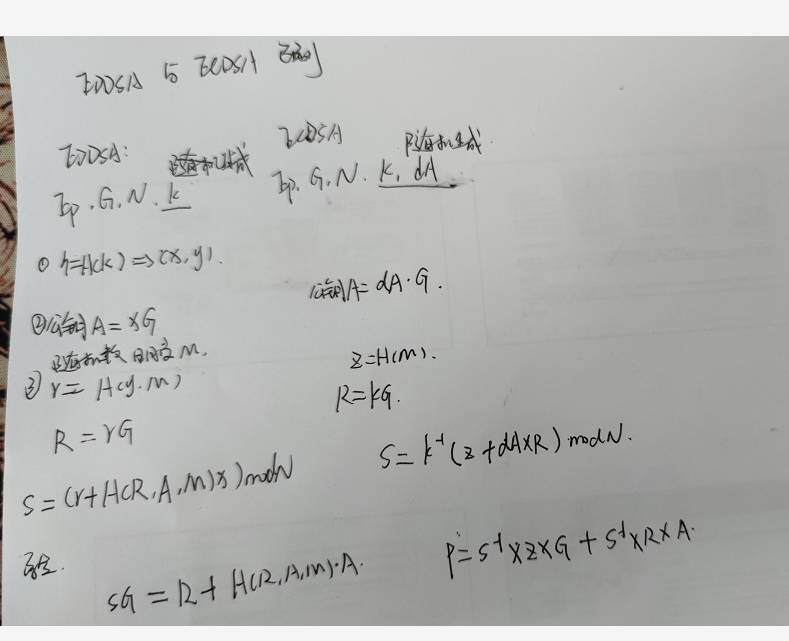 EDDSA 与 ECDSA 区别
EDDSA:
随机生成
Ep. G. N. k
ECDSA
随机生成.
Ep. G. N. k, dA
① h=H(k) => (x, y).
②公钥A = xG
公钥A = dA·G.
随机数 明文 M.
③ r = H(y.m)
R = rG
S = (r+H(R, A, M)x) mod N
z=H(M).
R=kG.
S = k⁻¹(z + dA×R) mod N.
验证.
SG = R + H(R,A,m)·A.
P = S⁻¹×z×G + S⁻¹×R×A.